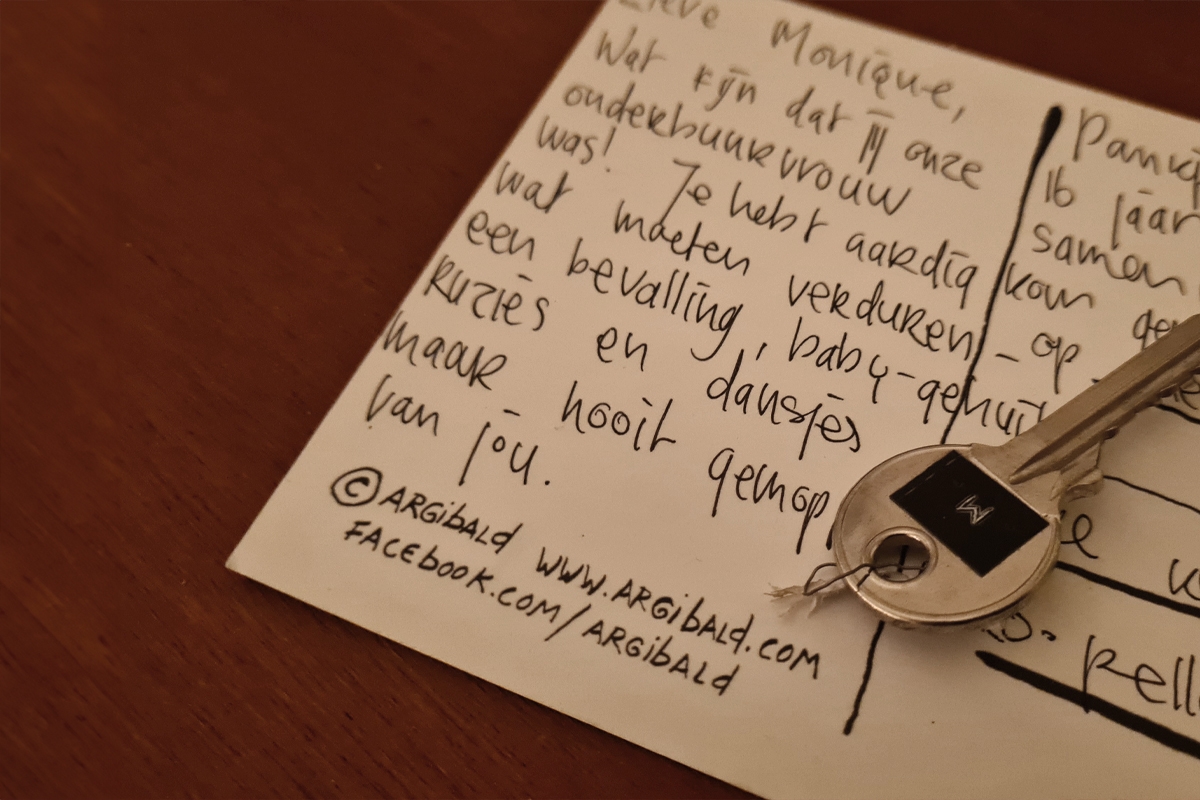 Lieve Monique,
Wat fijn dat jij onze
onderbuurvrouw
was! Je hebt aardig
wat moeten verduren –
een bevalling, baby-gehuil
ruzies en dansjes
maar nooit gemop
van jou.
© ARGIBALD WWW.ARGIBALD.COM
FACEBOOK.COM/ARGIBALD
16 jaar
samen
kom
op